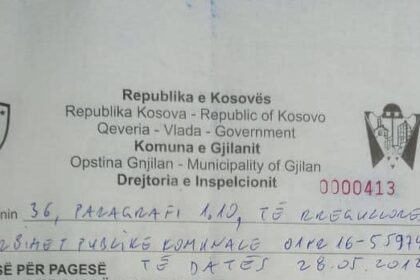 Republika e Kosovës
Republika Kosova - Republic of Kosovo
Qeveria - Vlada - Government
Komuna e Gjilanit
Opstina Gnjilan - Municipality of Gjilan
Drejtoria e Inspelcionit
0000413
36, PARAGRAFI 1.10, TË
PUBLIKE KOMUNALE 01 16-5597
PËR PAGESË TË DATËS 28.05.201